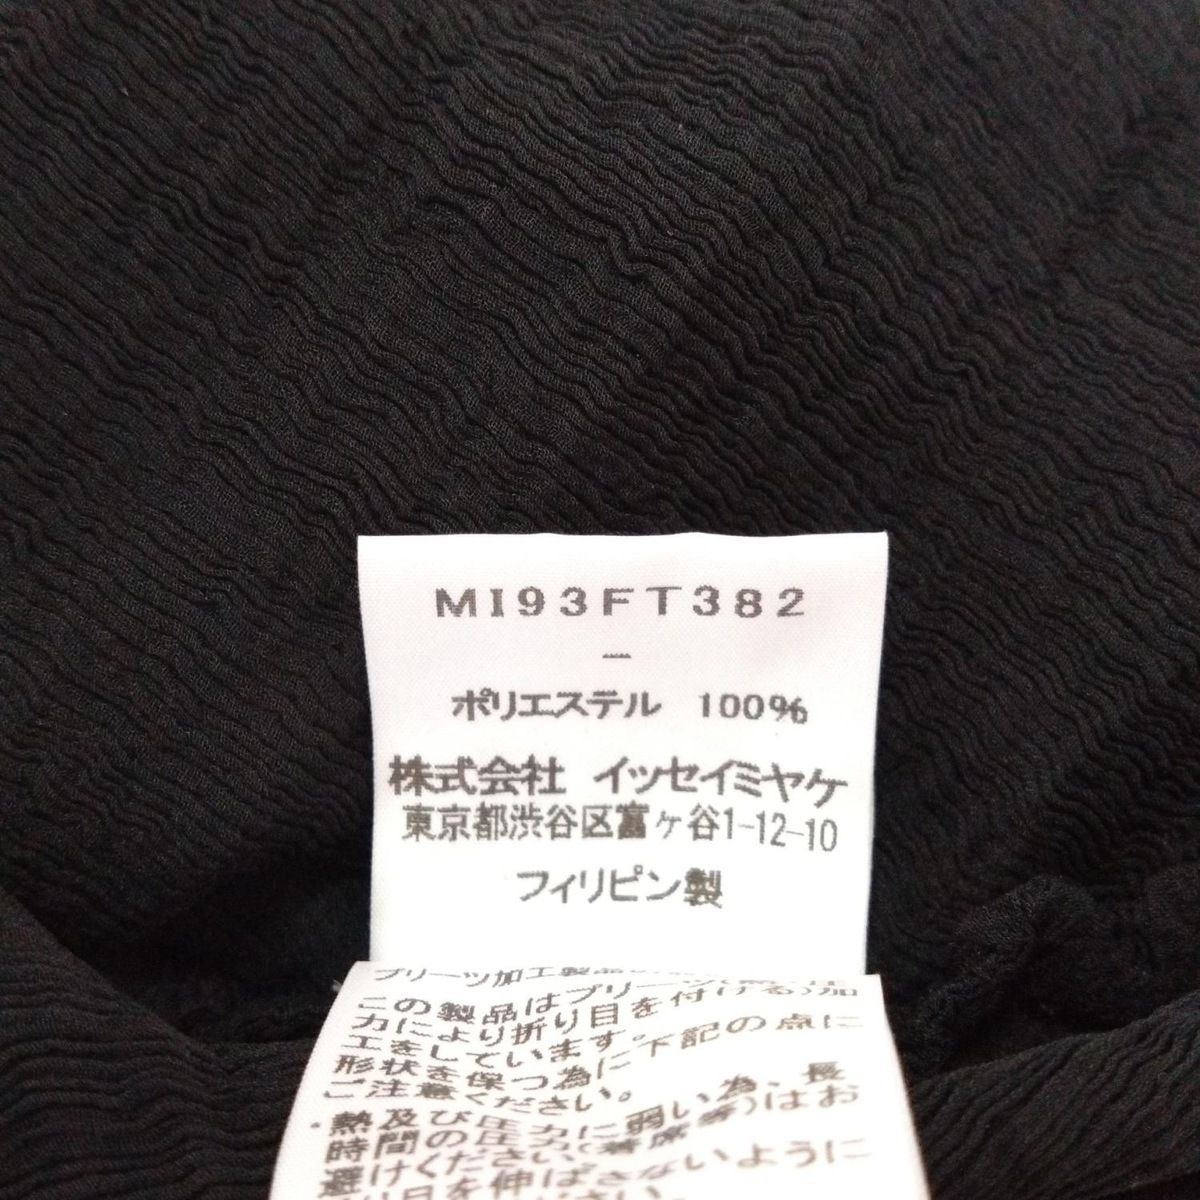 MI93FT382
—
ポリエステル 100%
株式会社 イッセイミヤケ
東京都渋谷区富ヶ谷1-12-10
フィリピン製
プリーツ加工製品
この製品はプリーツ(熱
力により折り目を付ける)加
工をしています。
形状を保つ為に下記の点に
ご注意ください。
・熱及び圧力に弱い為、長
時間の圧力(着席等)はお
避けください。
を伸ばさないように